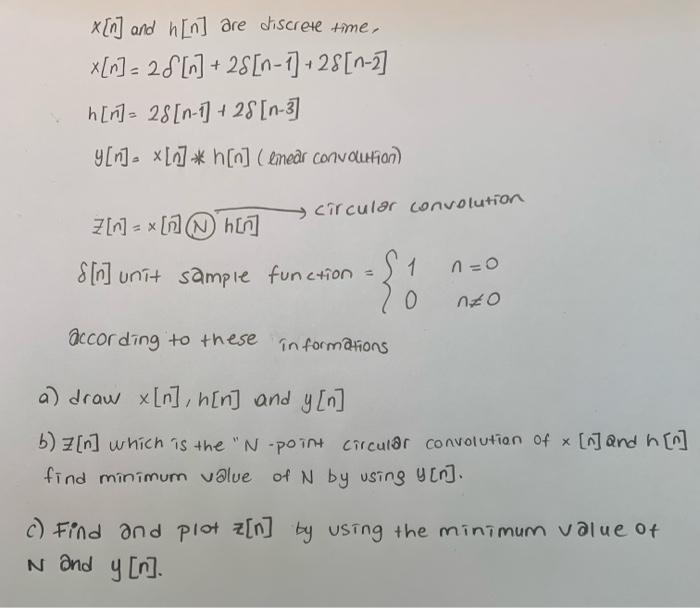 x[n] and h[n] are discrete time,
x[n] = 2δ[n] + 2δ[n-1] + 2δ[n-2]
h[n] = 2δ[n-1] + 2δ[n-3]
y[n] = x[n] * h[n] (linear convolution)
z[n] = x[n] Ⓝ h[n] → circular convolution
δ[n] unit sample function = { 1 n=0
0 n≠0
according to these informations
a) draw x[n], h[n] and y[n]
b) z[n] which is the "N-point circular convolution of x[n] and h[n]
find minimum value of N by using y[n].
c) Find and plot z[n] by using the minimum value of
N and y[n].